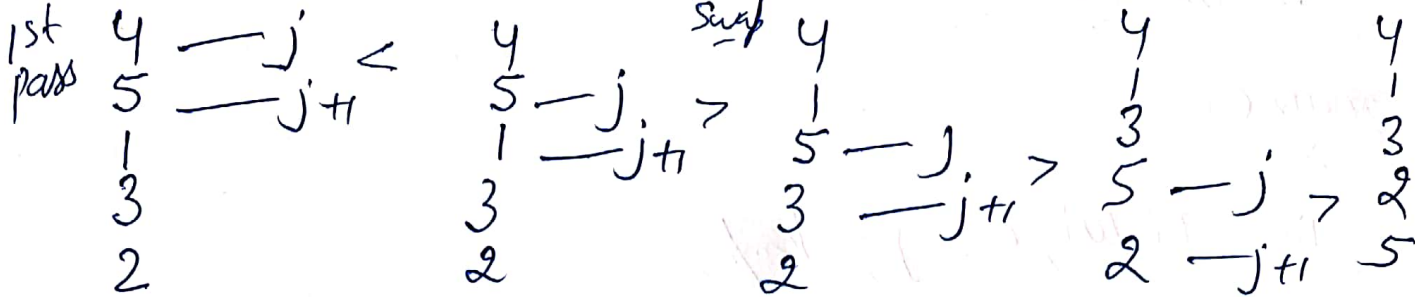 1st pass
4 — j <
5 — j+1
1
3
2
4
5 — j >
1 — j+1
3
2
Swap
4
1
5 — j >
3 — j+1
2
4
1
3
5 — j >
2 — j+1
4
1
3
2
5